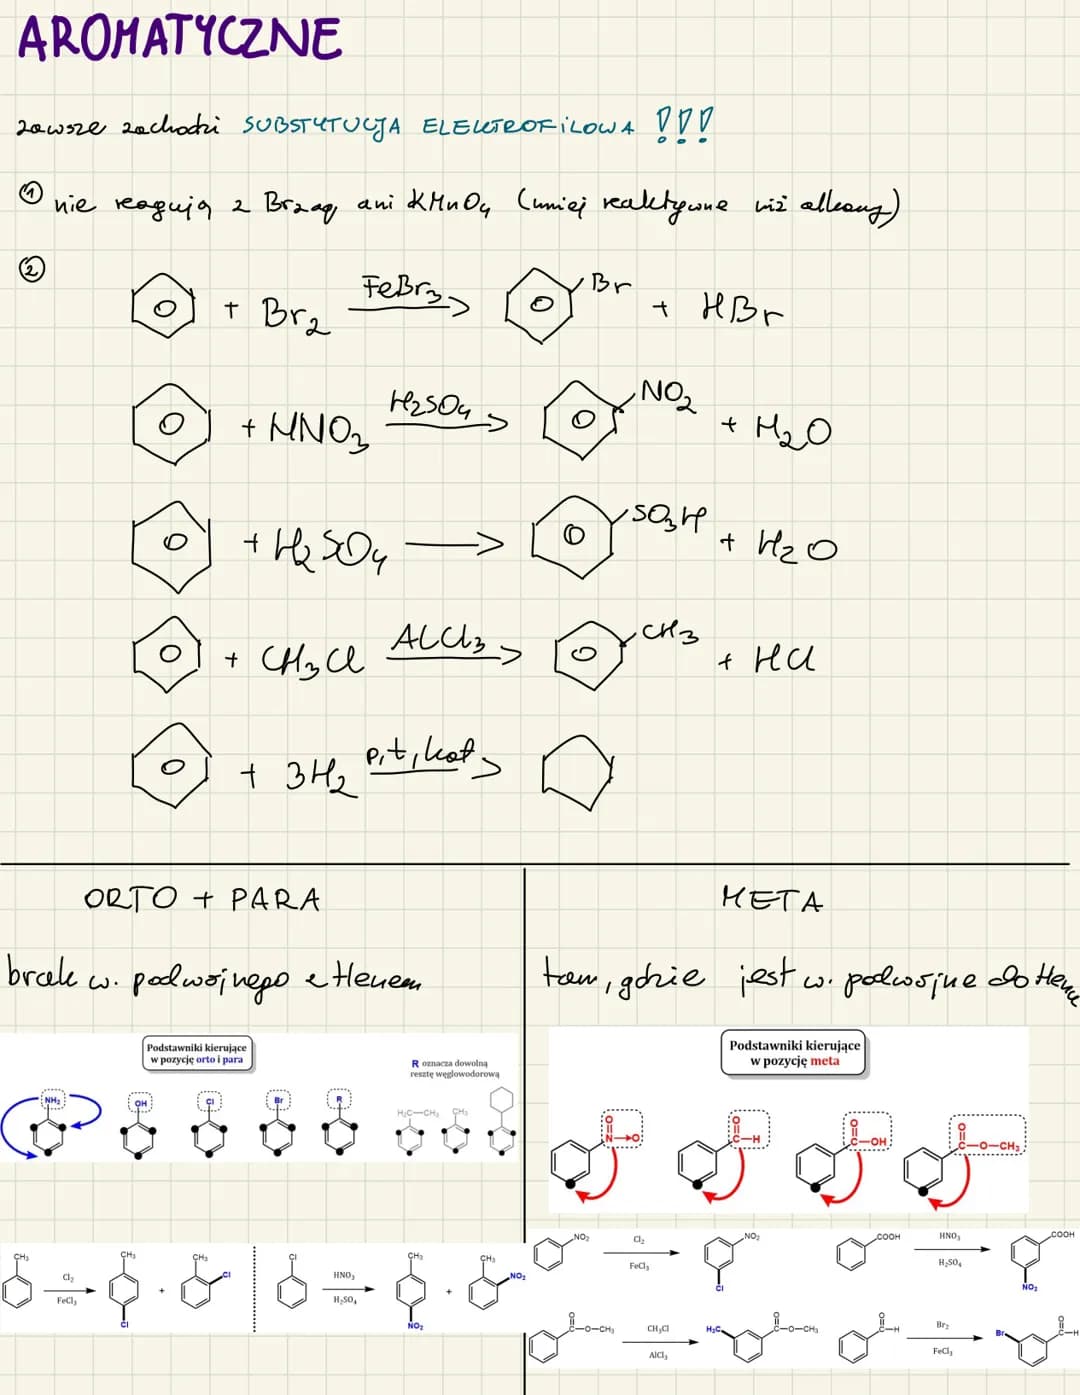 AROMATYCZNE
zawsze zachodzi SUBSTYTUCJA ELEKTROFILOWA !!!
① nie reagują z Br2aq ani KMnO4 (mniej reaktywne niż alkany)
②
+ Br2 FeBr3 Br + HBr
+ HNO3 H2SO4 NO2 + H2O
+ H2SO4 SO3H + H2O
+ CH3Cl AlCl3 CH3 + HCl
+ 3H2 p,t,kat
ORTO + PARA
brak w. podwójnego z tlenem
Podstawniki kierujące
w pozycję orto i para
R oznacza dowolną
resztę węglowodorową
NH2 OH Cl Br R H3C—CH2 CH3
CH3 Cl2 FeCl3 CH3 Cl + CH3 Cl
Cl HNO3 H2SO4 CH3 NO2 + CH3 NO2
META
tam, gdzie jest w. podwójne do tlenu
Podstawniki kierujące
w pozycję meta
O N→O O C—H O C—OH O C—O—CH3
NO2 Cl2 FeCl3 NO2 Cl
COOH HNO3 H2SO4 COOH NO2
O C—O—CH3 CH3Cl AlCl3 H3C O C—O—CH3
O C—H Br2 FeCl3 Br O C—H